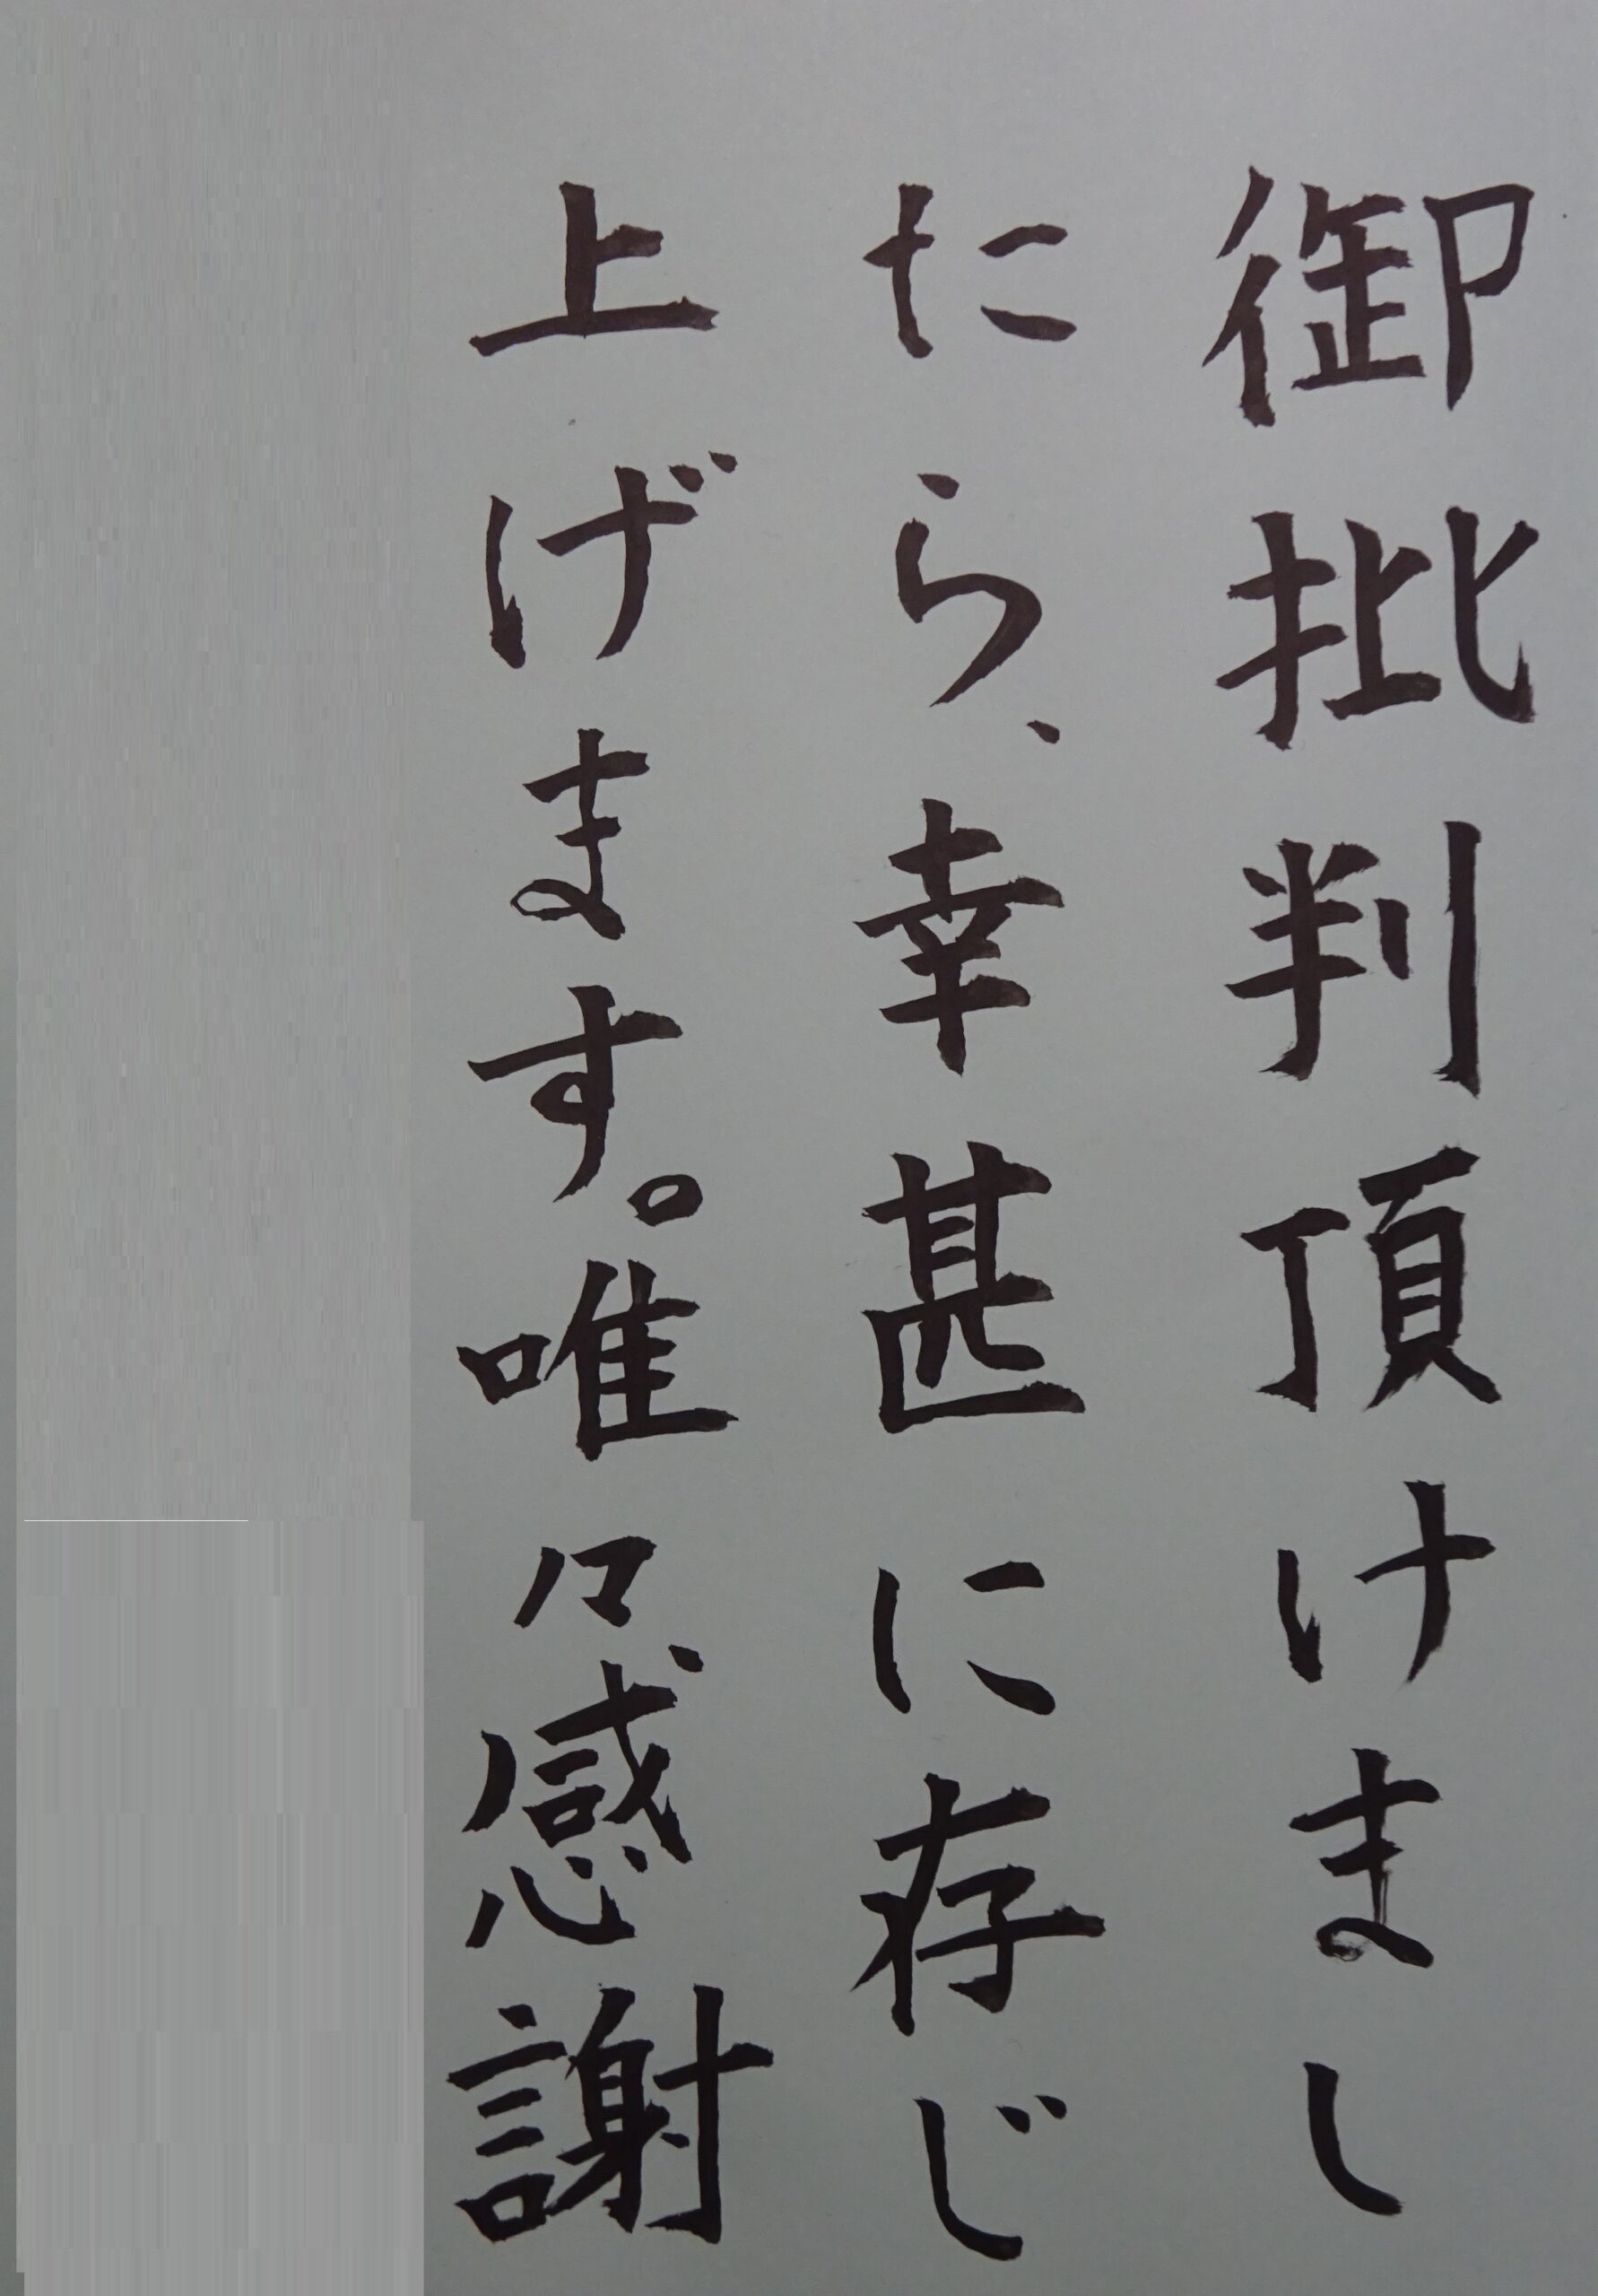 御批判頂けまし
たら、幸甚に存じ
上げます。唯々感謝